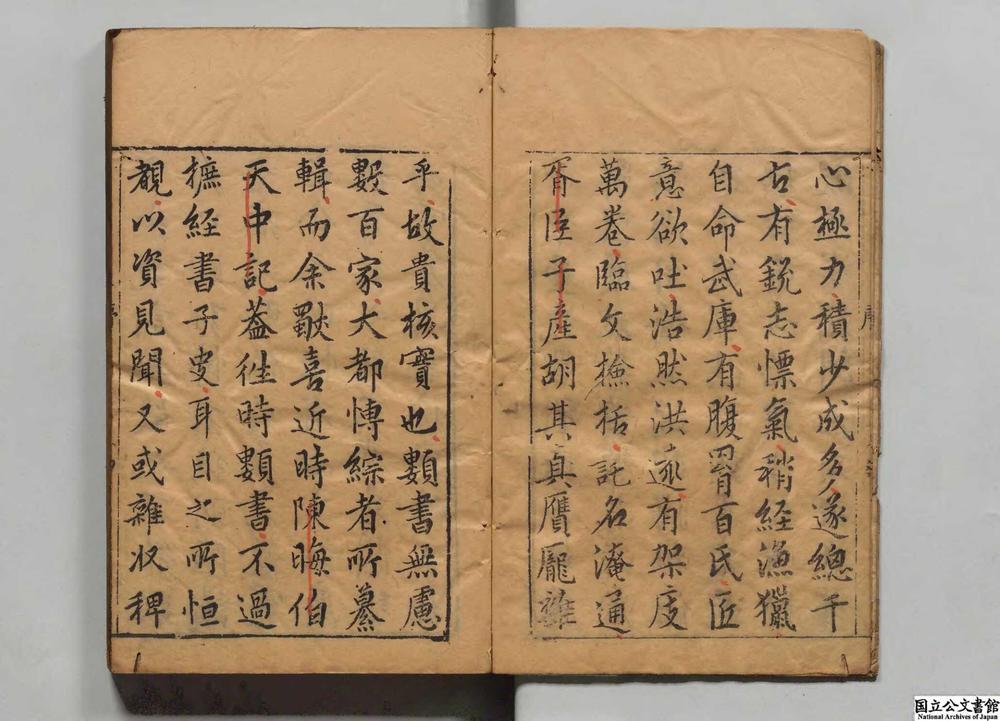 心極力積少成多遂總千
古有銳志慓氣稍経漁獵
自命武庫有腹笥百氏匠
意欲吐浩然洪遠有架庋
萬卷臨文撿括託名淹通
胥臣子產胡其真贋龎雜
乎故貴核實也類書無慮
數百家大都博綜者所纂
輯而余歜喜近時陳晦伯
天中記葢徃時類書不過
摭經書子史耳目之所恒
覩以資見聞又或雜収稗
序
国立公文書館
National Archives of Japan